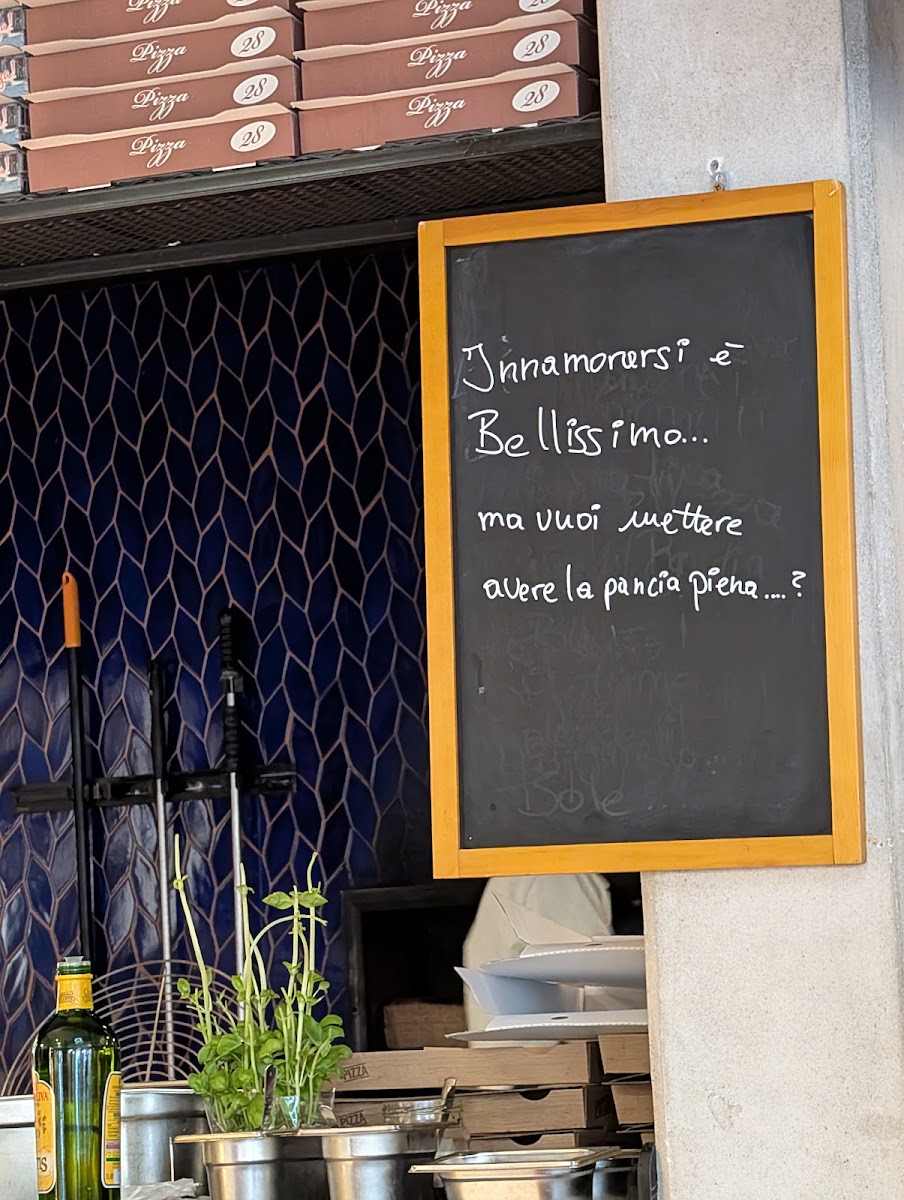 Pizza
Pizza
Pizza 28
Pizza 28
Pizza 28
Pizza 28
Pizza 28
Innamorarsi è
Bellissimo...
ma vuoi mettere
avere la pancia piena....?
Bole
PIZZA
PIZZA